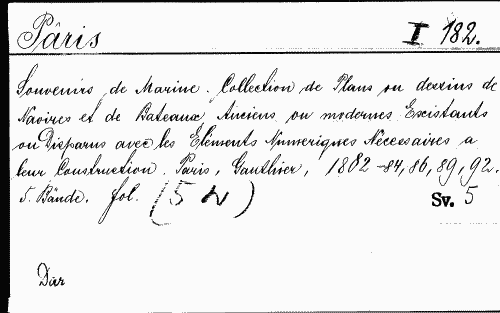 Pâris I 182.
Souvenirs de Marine. Collection de Plans ou dessins de
Navires et de Bateaux Anciens ou modernes Existants
ou Disparus avec les Elements Numeriques Necessaires a
leur Construction. Paris, Gauthier, 1882-84, 86, 89, 92.
5. Bände. fol. (5 )
Sv. 5
Dar